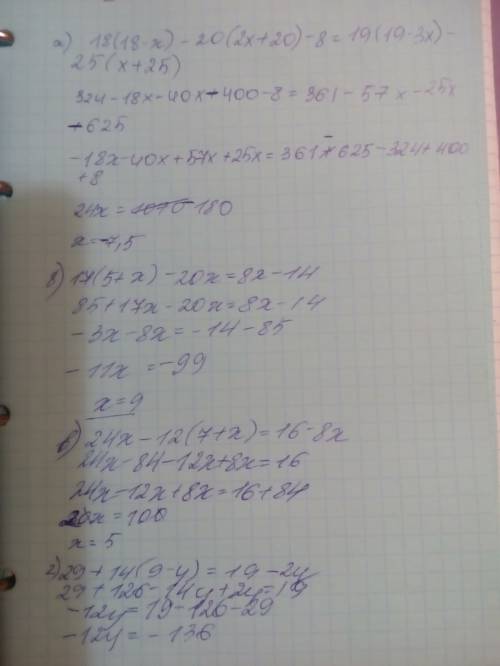 а) 18(18-x) - 20(2x+20) - 8 = 19(19-3x) -
25(x+25)
324 - 18x - 40x - 400 - 8 = 361 - 57x - 25x
- 625
-18x - 40x + 57x + 25x = 361 - 625 - 324 + 400
+ 8
24x = 180
x = -7,5
б) 17(5+x) - 20x = 8x - 14
85 + 17x - 20x = 8x - 14
- 3x - 8x = - 14 - 85
- 11x = - 99
x = 9
в) 24x - 12(7+x) = 16 - 8x
24x - 84 - 12x + 8x = 16
24x - 12x + 8x = 16 + 84
20x = 100
x = 5
г) 29 + 14(9-y) = 19 - 2y
29 + 126 - 14y + 2y = 19
- 12y = 19 - 126 - 29
- 12y = - 136